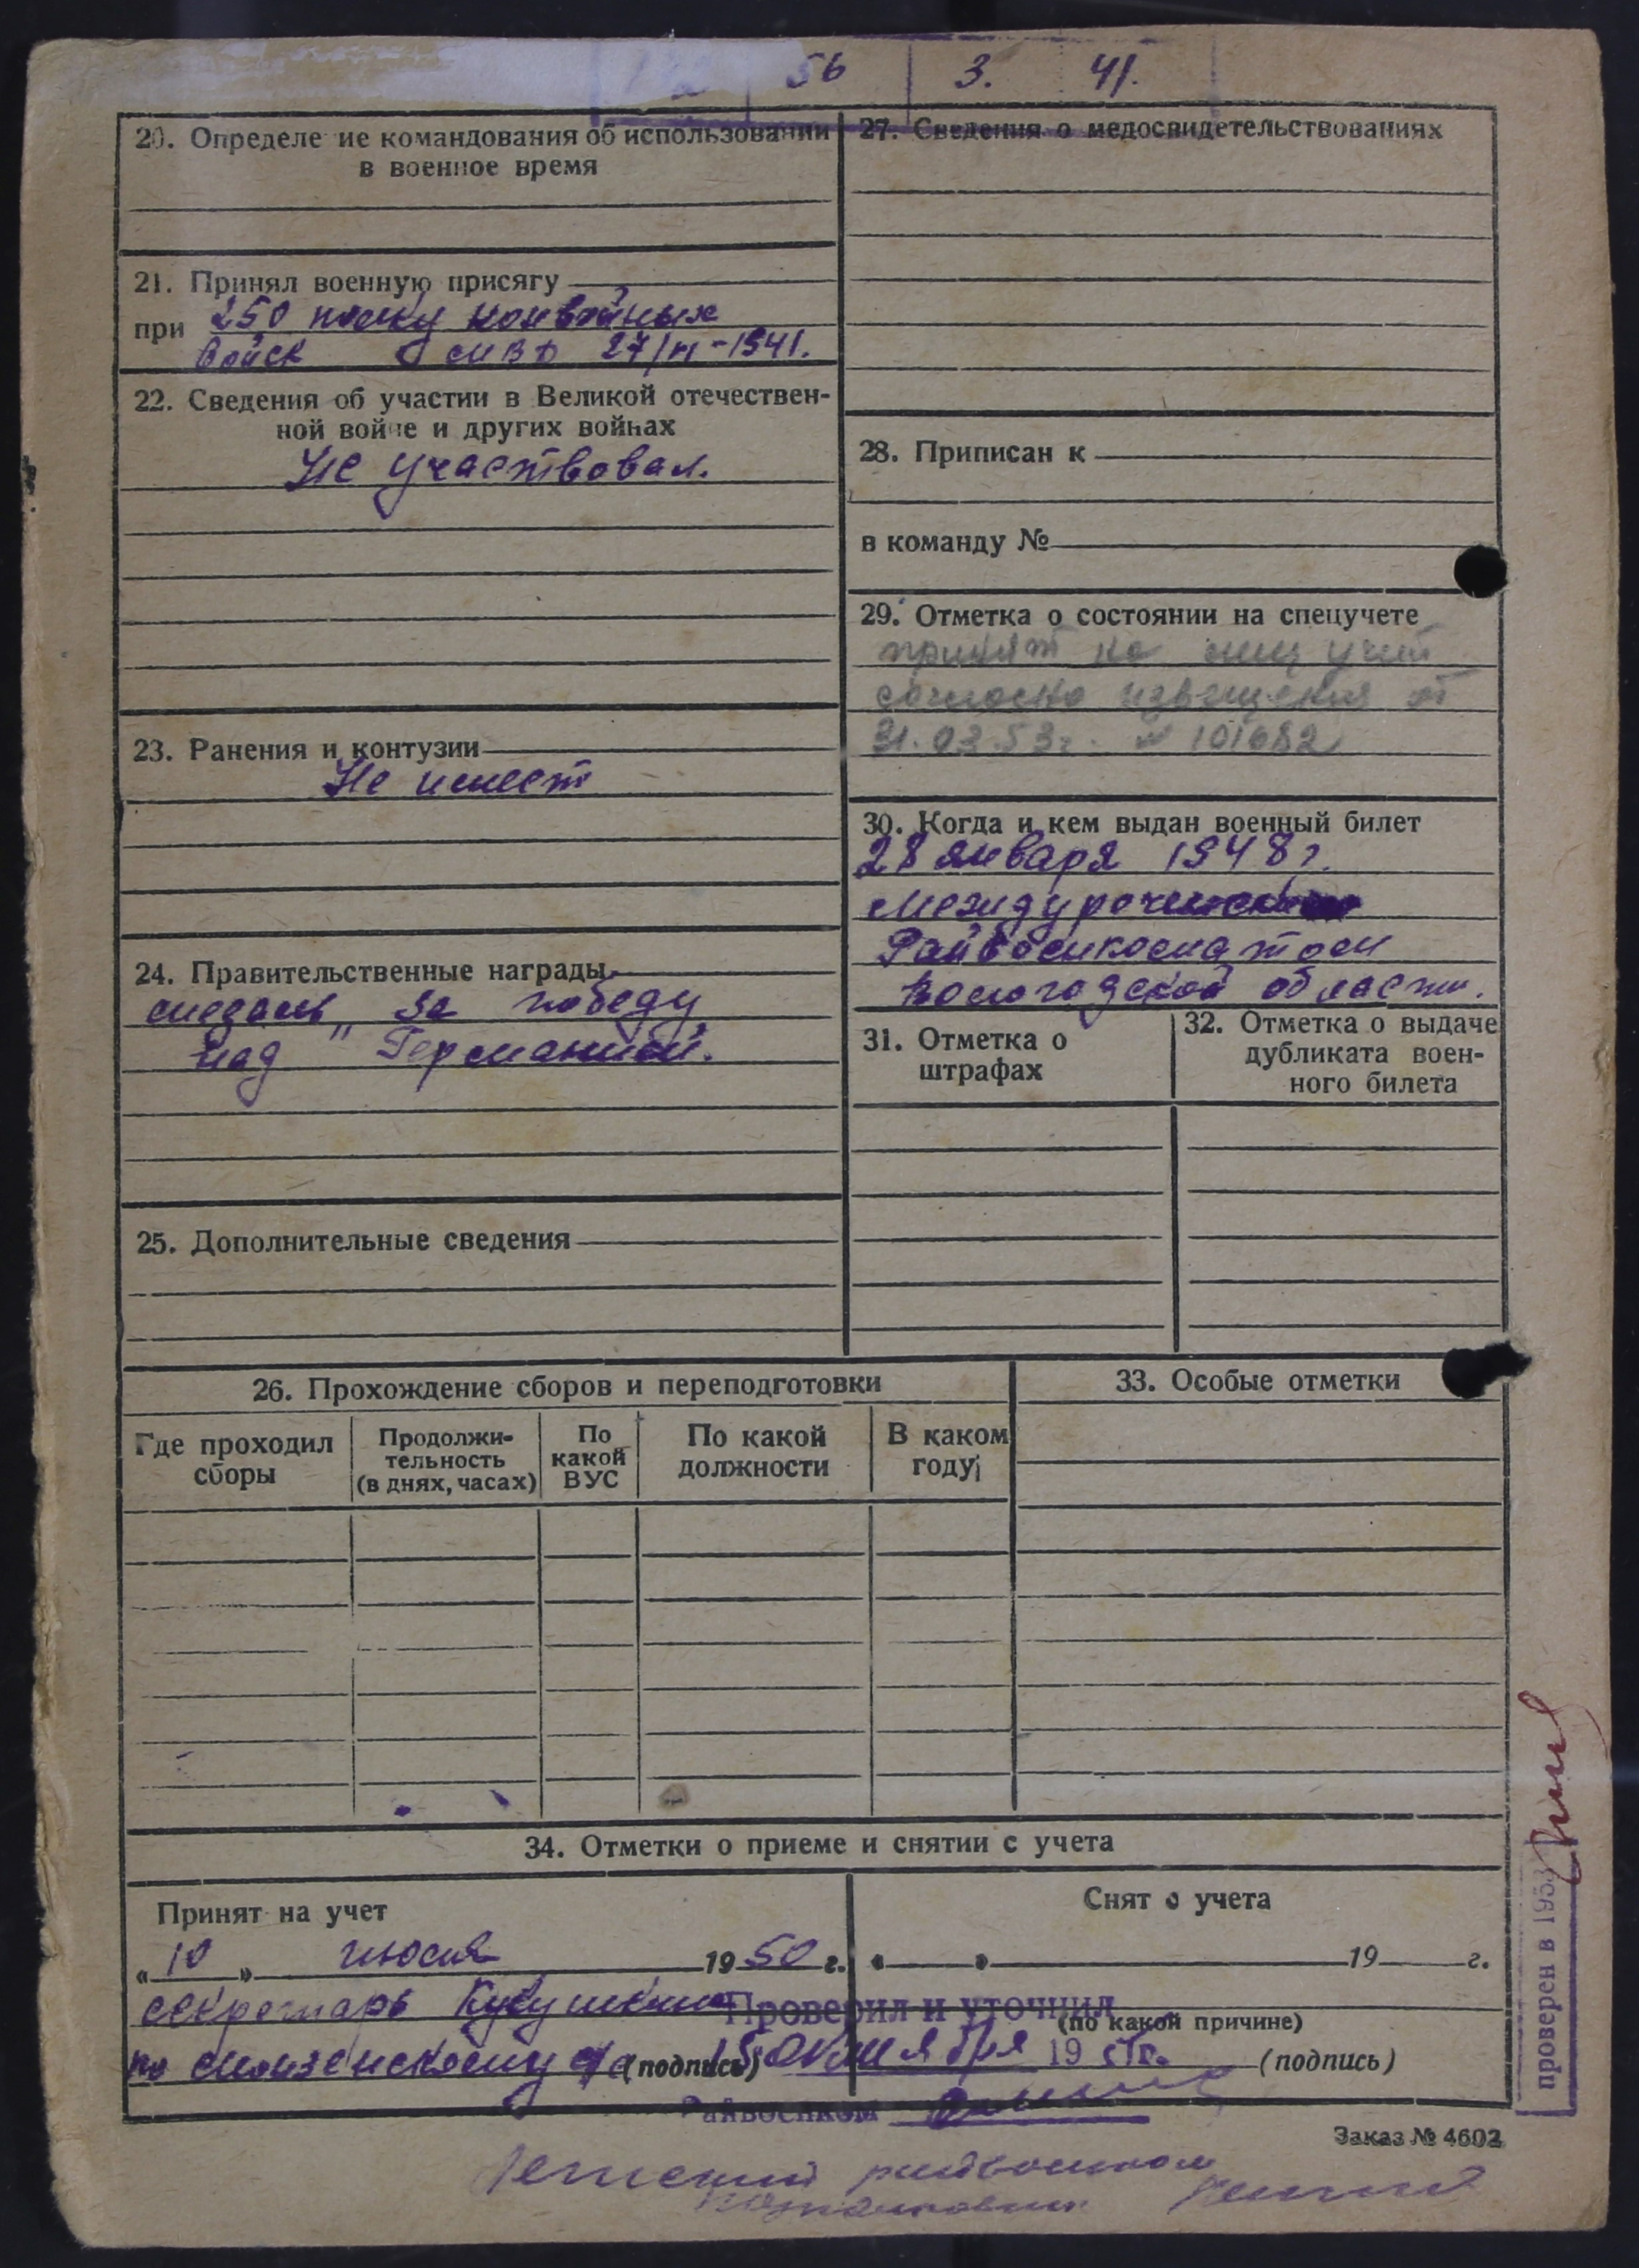 56 3. 41.
20. Определе ие командования об использовании
в военное время
21. Принял военную присягу
при 250 полку конвойных
войск МВД 27/VI-1941.
22. Сведения об участии в Великой отечествен-
ной войне и других войнах
Не участвовал.
23. Ранения и контузии
Не имеет
24. Правительственные награды
медаль "За победу
над Германией.
25. Дополнительные сведения
27. Сведения о медосвидетельствованиях
28. Приписан к
в команду №
29. Отметка о состоянии на спецучете
принят на спец учет
согласно извещения от
31.03.53г. № 101682
30. Когда и кем выдан военный билет
28 января 1948г.
Междуреченским
Райвоенкоматом
Вологодской области.
31. Отметка о
штрафах
32. Отметка о выдаче
дубликата воен-
ного билета
26. Прохождение сборов и переподготовки
Где проходил
сборы
Продолжи-
тельность
(в днях, часах)
По
какой
ВУС
По какой
должности
В каком
году
33. Особые отметки
34. Отметки о приеме и снятии с учета
Принят на учет
„10" июля 1950 г.
секретарь Кукушкин
по (подпись)
Снят с учета
« » 19 г.
(по какой причине)
(подпись)
Проверил и уточнил
15 октября 19 51г.
Райвоенком
проверен в 1953
Заказ № 4602
райвоенком